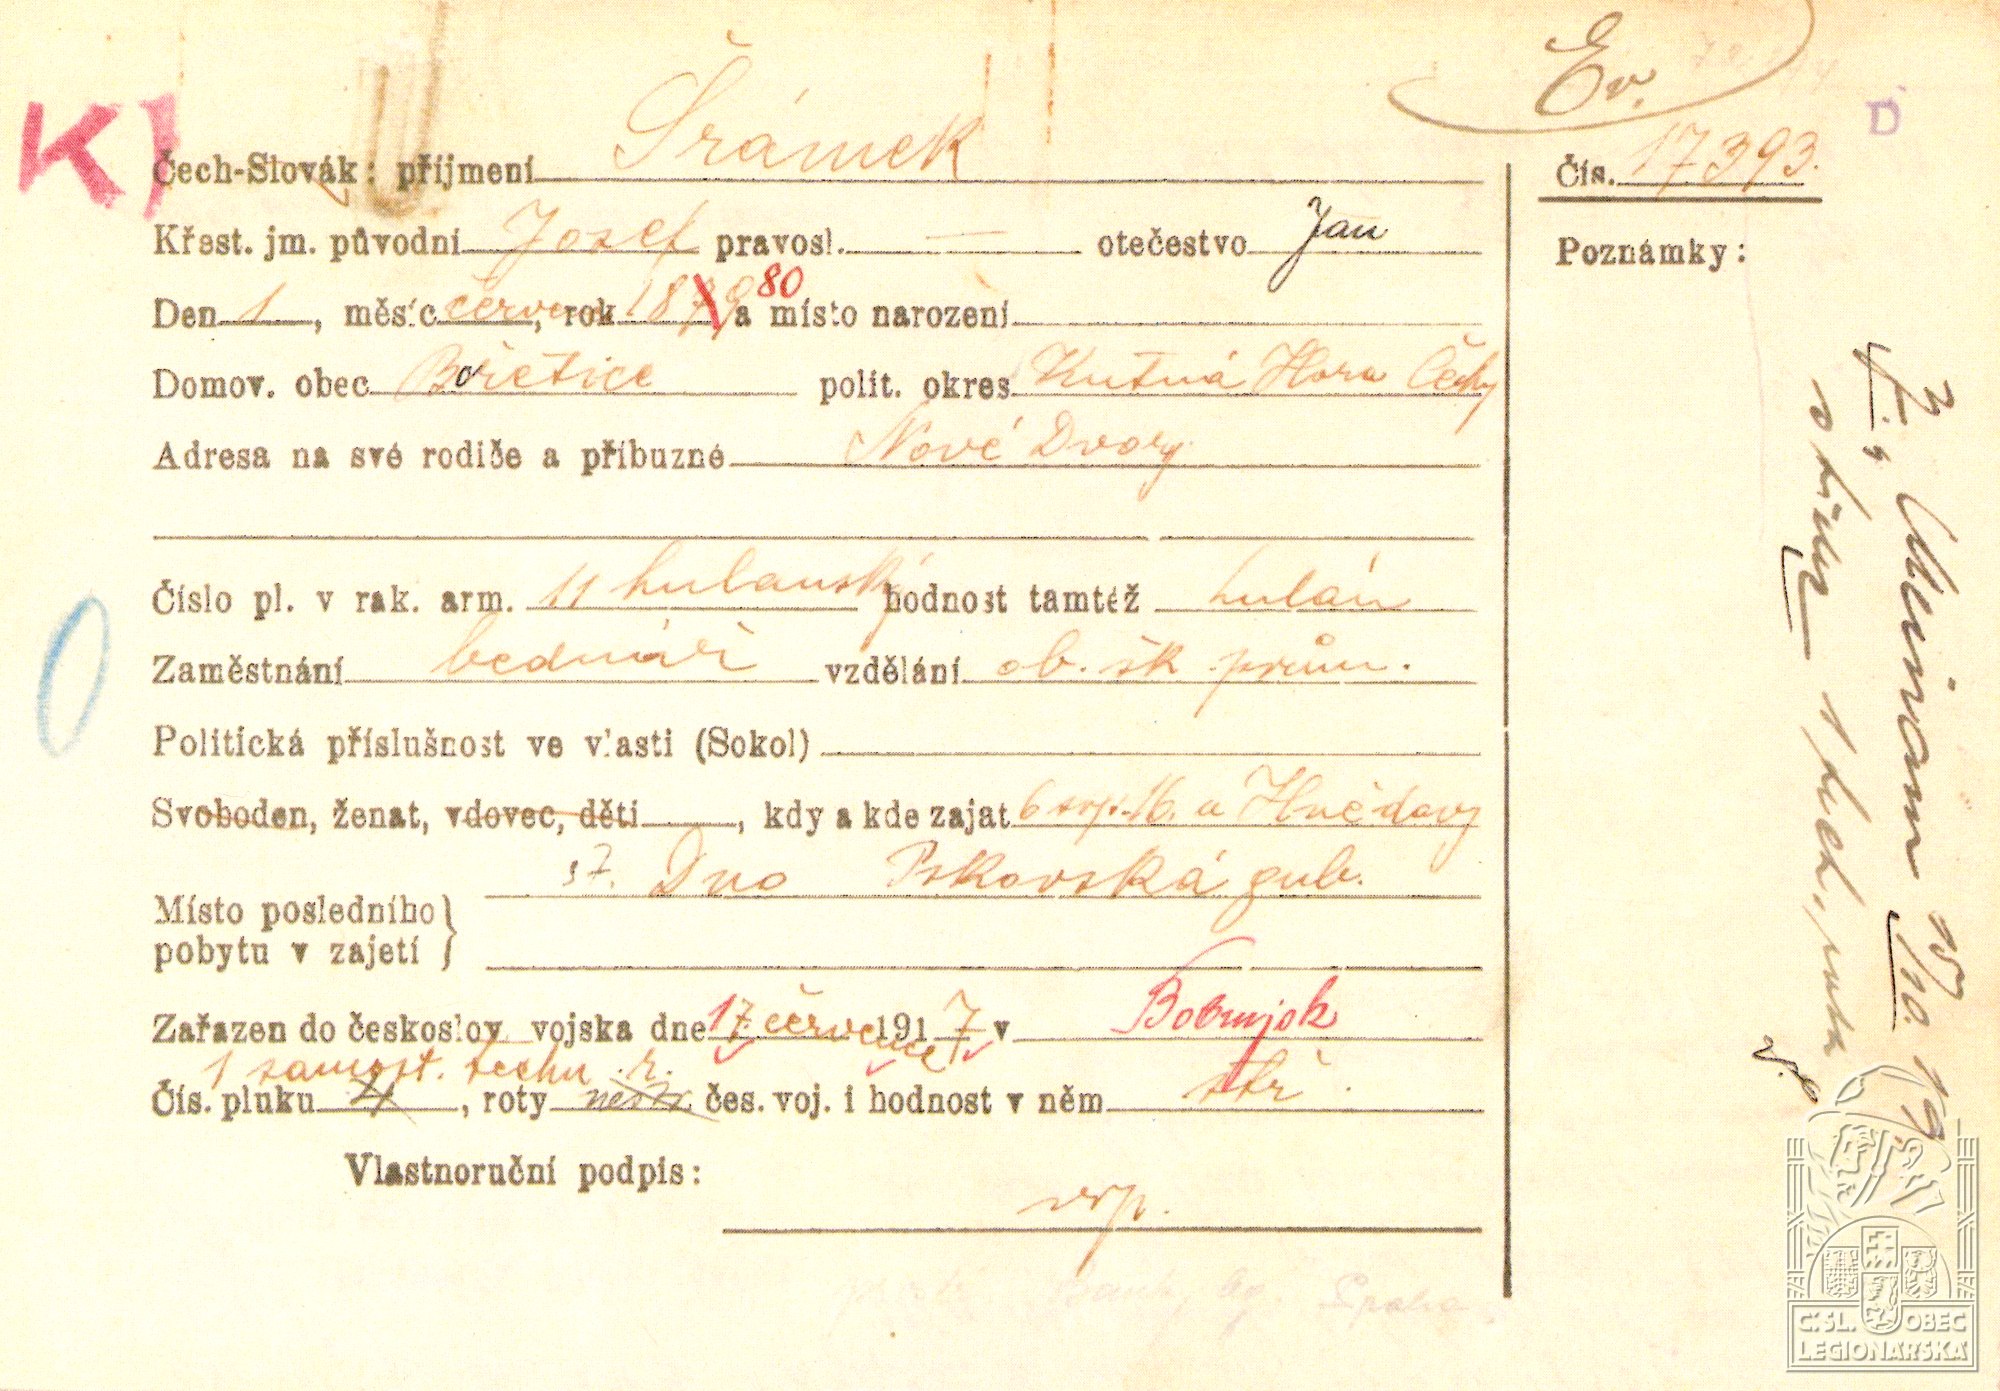 K)
Ev.
D
Čech-Slovák: příjmení Šrámek
Čís. 17393.
Křest. jm. původní Josef pravosl. — otečestvo Jan
Poznámky:
Den 1, měsíc červen, rok 1879 80 a místo narození
Domov. obec Bořetice polit. okres Kutná Hora Čechy
Adresa na své rodiče a příbuzné Nové Dvory
Číslo pl. v rak. arm. 11 hulanský hodnost tamtéž hulán
Zaměstnání bednář vzdělání ob. šk. prům.
Politická příslušnost ve vlasti (Sokol)
Svoboden, ženat, vdovec, děti, kdy a kde zajat 6 srp. 16. u Hnědavy
st. Dno Pskovská gub.
Místo posledního
pobytu v zajetí
Zařazen do českoslov. vojska dne 17. července 1917 v Bobrujsk
1 samost. techn. r.
Čís. pluku 4, roty čes. voj. i hodnost v něm stř.
Vlastnoruční podpis:
vrp.
10. 19.
Č.SL. OBEC
LEGIONÁŘSKÁ